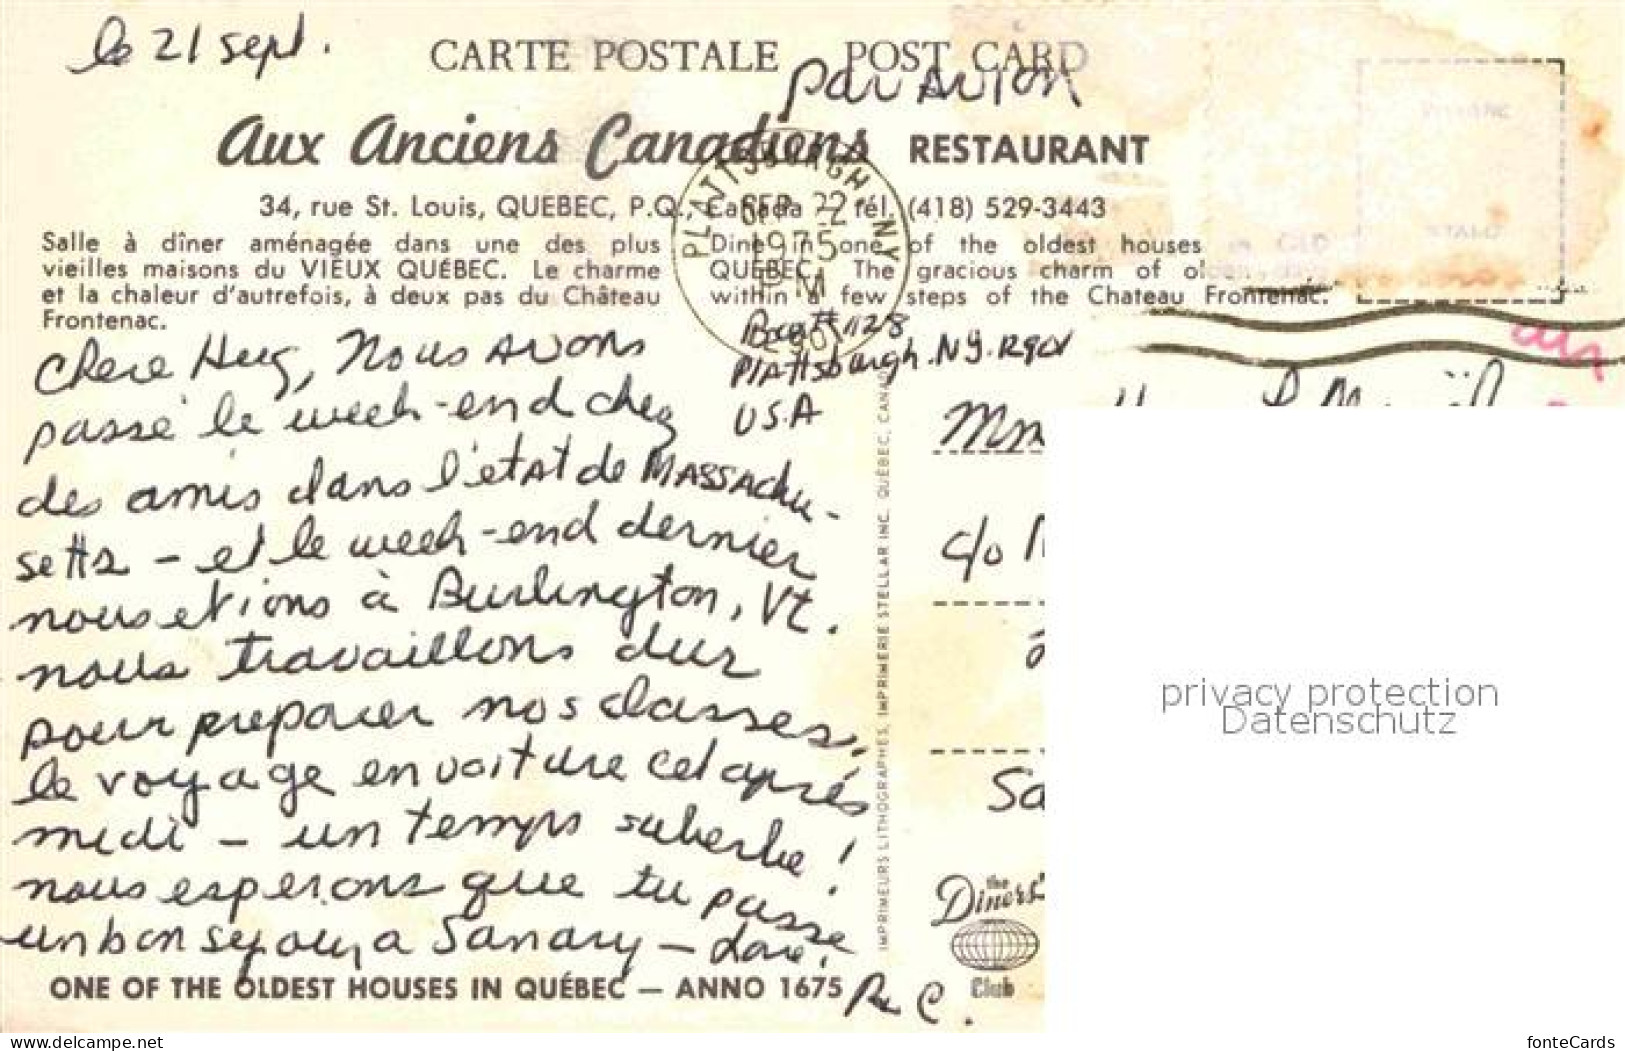 le 21 sept.
CARTE POSTALE POST CARD
par Avion
Aux Anciens Canadiens RESTAURANT
34, rue St. Louis, QUEBEC, P.Q., Canada tél. (418) 529-3443
PLATTSBURGH NY
SEP 22
1975
Salle à dîner aménagée dans une des plus
vieilles maisons du VIEUX QUÉBEC. Le charme
et la chaleur d'autrefois, à deux pas du Château
Frontenac.
Dine in one of the oldest houses in OLD
QUEBEC. The gracious charm of olden days
within a few steps of the Chateau Frontenac.
Chere Hug, Nous Avons
passé le week-end chez
des amis dans l'etat de Massachu-
setts - et le week-end dernier
nous etions à Burlington, Vt.
nous travaillons dur
pour preparer nos classes.
le voyage en voiture cet après
midi - un temps suberbe!
nous esperons que tu passe
un bon sejour a Sanary - Love!
R. C.
1128
Plattsburgh. NY. 12901
USA
Mm
c/o
Sa
IMPRIMEURS LITHOGRAPHES, IMPRIMERIE STELLAR INC. QUÉBEC, CANA
the
Diners'
Club
ONE OF THE OLDEST HOUSES IN QUÉBEC — ANNO 1675
privacy protection
Datenschutz
www.delcampe.net
fonteCards